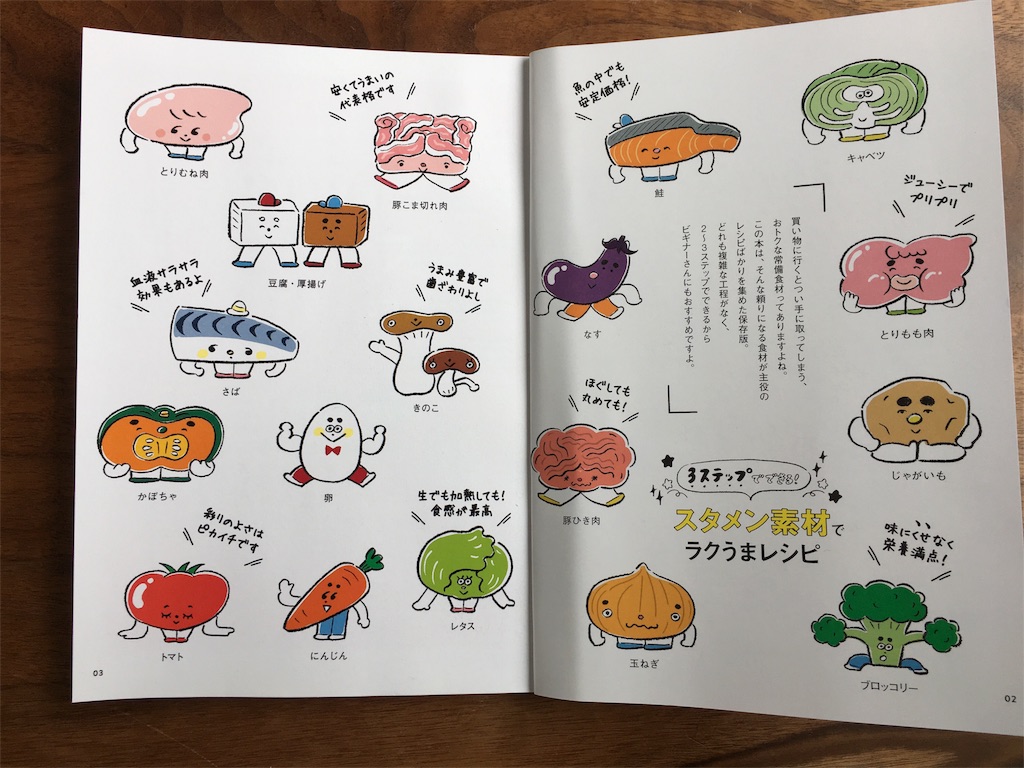 魚の中でも
安定価格!
鮭
キャベツ
買い物に行くとつい手に取ってしまう、
おトクな常備食材ってありますよね。
この本は、そんな頼りになる食材が主役の
レシピばかりを集めた保存版。
どれも複雑な工程がなく、
2〜3ステップでできるから
ビギナーさんにもおすすめですよ。
ジューシーで
プリプリ
とりもも肉
なす
ほぐしても
丸めても!
豚ひき肉
じゃがいも
3ステップでできる!
スタメン素材で
ラクうまレシピ
味にくせなく
栄養満点!
玉ねぎ
ブロッコリー
02
とりむね肉
安くてうまいの
代表格です
豚こま切れ肉
豆腐・厚揚げ
血液サラサラ
効果もあるよ
さば
うまみ豊富で
歯ざわりよし
きのこ
かぼちゃ
卵
生でも加熱しても!
食感が最高
レタス
彩りのよさは
ピカイチです
トマト
にんじん
03